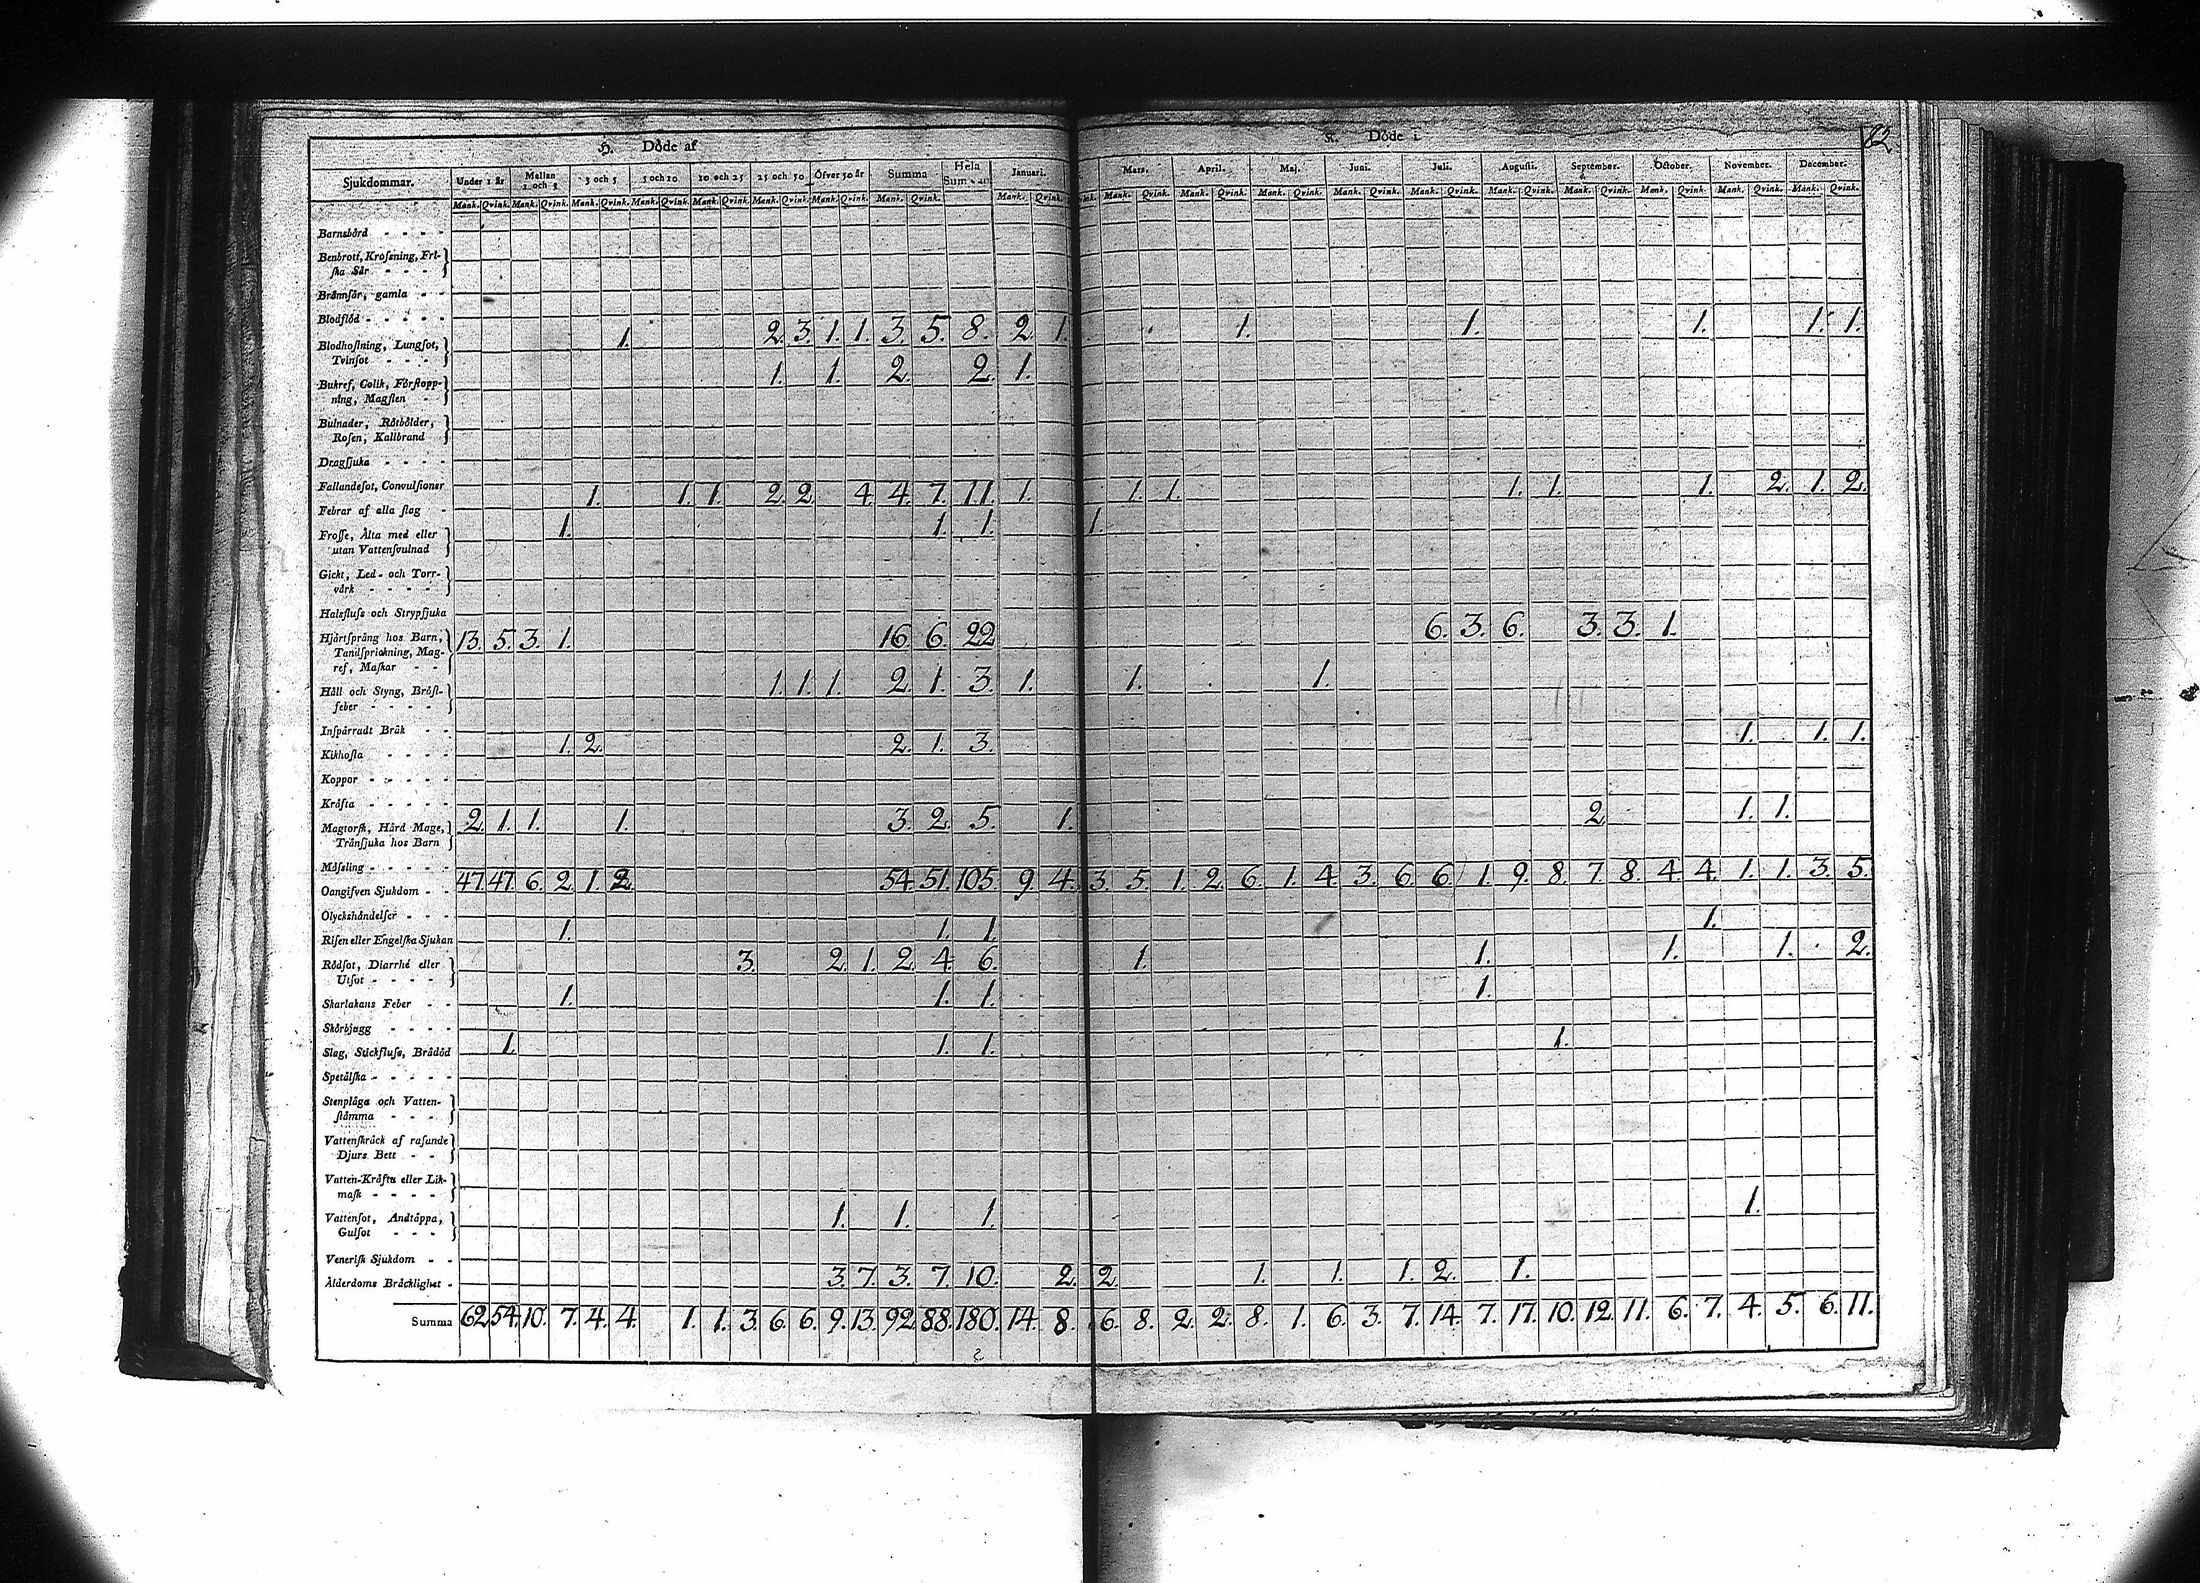 H. Döde af
K. Döde i
82.
Sjukdommar. Under 1 år Mellan 1 och 3 3 och 5 5 och 10 10 och 25 25 och 50 Öfver 50 år Summa Hela Summan Januari. Mars. April. Maj. Juni. Juli. Augusti. September. October. November. December.
Mank. Qvink. Mank. Qvink. Mank. Qvink. Mank. Qvink. Mank. Qvink. Mank. Qvink. Mank. Qvink. Mank. Qvink. Mank. Qvink. Mank. Qvink. Mank. Qvink. Mank. Qvink. Mank. Qvink. Mank. Qvink. Mank. Qvink. Mank. Qvink. Mank. Qvink. Mank. Qvink. Mank. Qvink.
Barnsbörd - - - -
Benbrott, Krossning, Fri-
ska Sår - - -
Brännsår, gamla - -
Blodflöd - - - - -
Blodhostning, Lungsot,
Tvinsot - - - 1. 2. 3. 1. 1. 3. 5. 8. 2. 1. 1. 1. 1. 1. 1.
Bukref, Colik, Förstopp-
ning, Magsten - 1. 1. 2. 2. 1.
Bulnader, Rötbölder,
Rosen, Kallbrand
Dragsjuka - - - -
Fallandesot, Convulsioner
Febrar af alla slag - 1. 1. 1. 2. 2. 4. 4. 7. 11. 1. 1. 1. 1. 1. 1. 2. 1. 2.
Frosse, Älta med eller
utan Vattensvulnad 1. 1. 1. 1.
Gickt, Led- och Torr-
värk - - - -
Halsfluss och Strypsjuka
Hjärtsprång hos Barn,
Tandsprickning, Mag-
ref, Maskar - - 13. 5. 3. 1. 16. 6. 22. 6. 3. 6. 3. 3. 1.
Håll och Styng, Bröst-
feber - - - - 1. 1. 1. 2. 1. 3. 1. 1. 1.
Inspärradt Bråk - -
Kikhosta - - - - 1. 2. 2. 1. 3. 1. 1. 1.
Koppor - - - - -
Kräfta - - - - -
Magtorsk, Hård Mage,
Tränsjuka hos Barn 2. 1. 1. 1. 3. 2. 5. 1. 2. 1. 1.
Mässling - - - - -
Oangifven Sjukdom - - 47. 47. 6. 2. 1. 2. 54. 51. 105. 9. 4. 3. 5. 1. 2. 6. 1. 4. 3. 6. 6. 1. 9. 8. 7. 8. 4. 4. 1. 1. 3. 5.
Olyckshändelser - - -
Risen eller Engelska Sjukan 1. 1. 1. 1.
Rödsot, Diarrhé eller
Utsot - - - - 3. 2. 1. 2. 4. 6. 1. 1. 1. 1. 2.
Skarlakans Feber - - 1. 1. 1. 1.
Skörbjugg - - - -
Slag, Stickfluss, Brådöd 1. 1. 1. 1.
Spetälska - - - - -
Stenplåga och Vatten-
stämma - - -
Vattenskräck af rasande
Djurs Bett - -
Vatten-Kräfta eller Lik-
mask - - - -
Vattensot, Andtäppa,
Gulsot - - - 1. 1. 1. 1.
Venerisk Sjukdom - -
Ålderdoms Bräcklighet - 3. 7. 3. 7. 10. 2. 2. 1. 1. 1. 2. 1.
Summa 62. 54. 10. 7. 4. 4. 1. 1. 3. 6. 6. 9. 13. 92. 88. 180. 14. 8. 6. 8. 2. 2. 8. 1. 6. 3. 7. 14. 7. 17. 10. 12. 11. 6. 7. 4. 5. 6. 11.